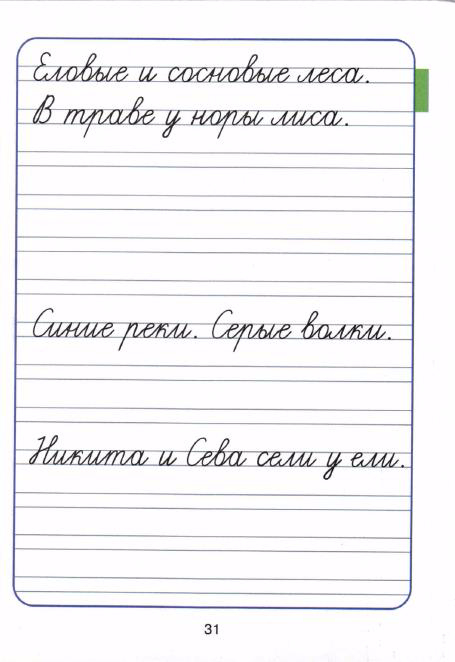 Еловые и сосновые леса.
В траве у норы лиса.
Синие реки. Серые волки.
Никита и Сева сели у ели.
31